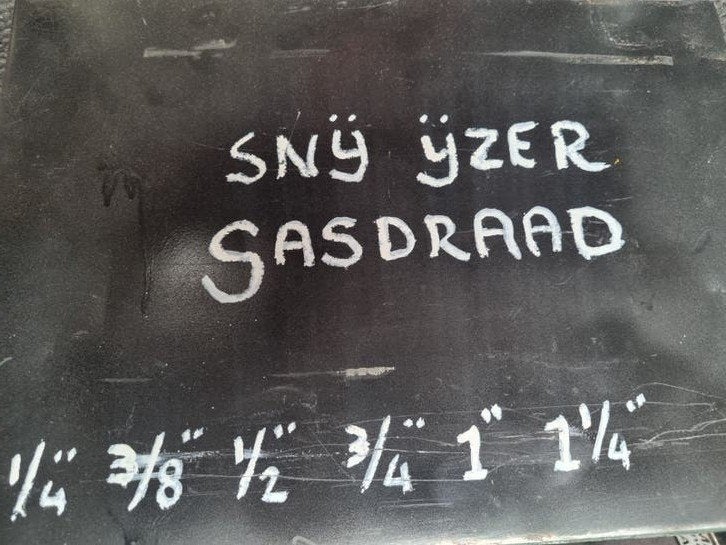 SNÿ ÿZER
GASDRAAD
1/4" 3/8" 1/2" 3/4" 1" 1 1/4"